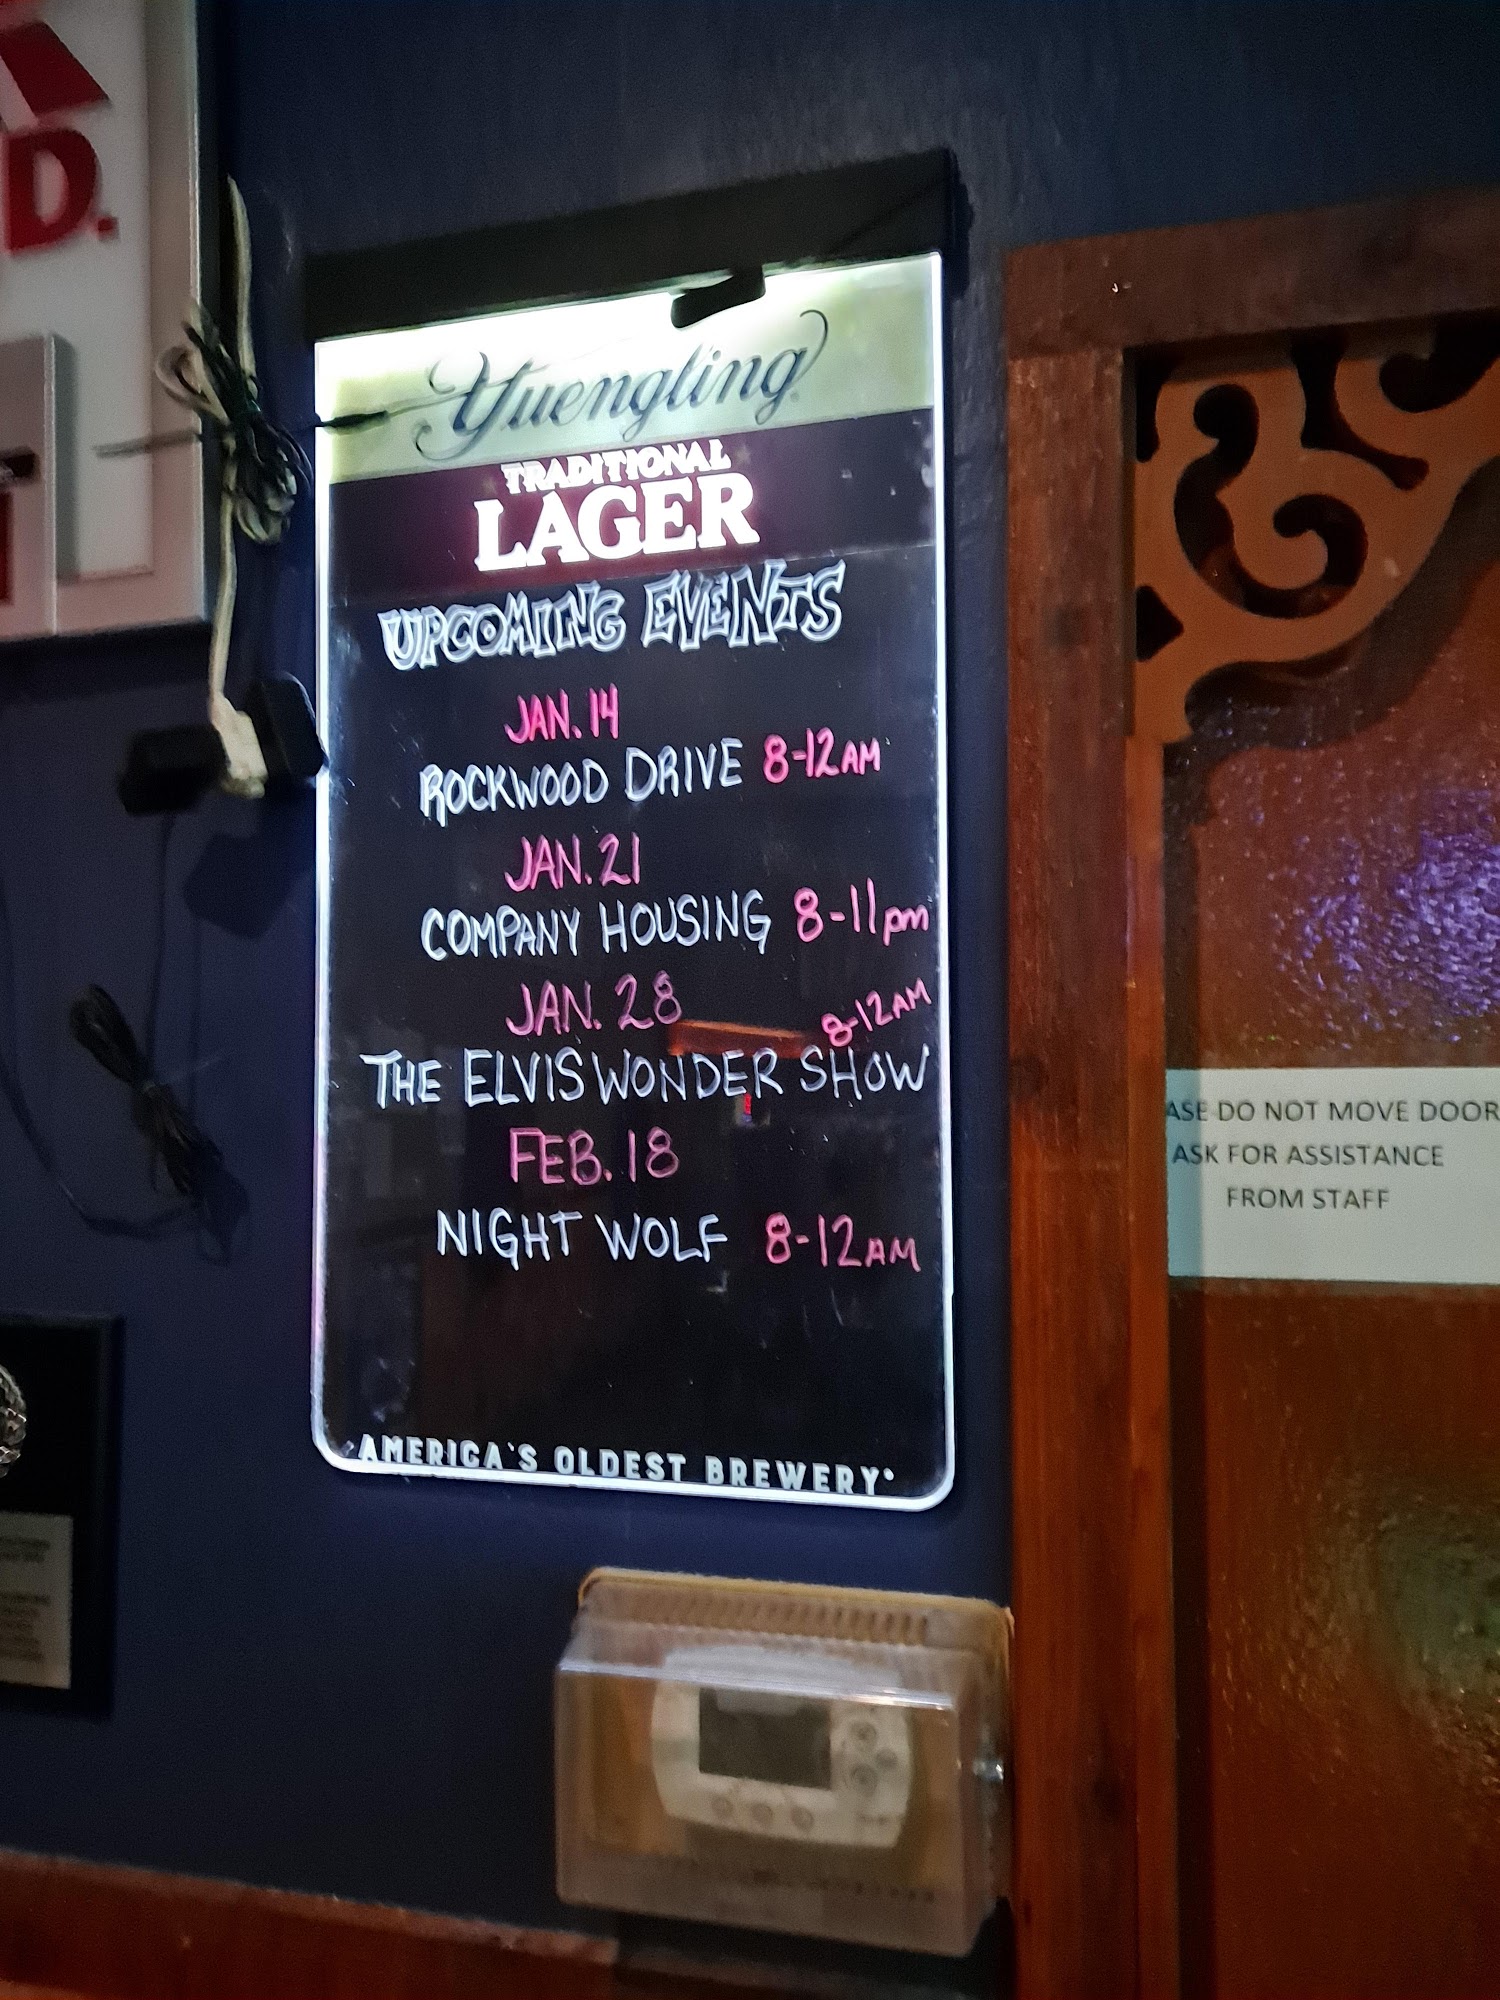 D.
Yuengling
TRADITIONAL
LAGER
UPCOMING EVENTS
JAN. 14
ROCKWOOD DRIVE 8-12AM
JAN. 21
COMPANY HOUSING 8-11pm
JAN. 28
8-12AM
THE ELVIS WONDER SHOW
FEB. 18
NIGHT WOLF 8-12AM
AMERICA'S OLDEST BREWERY®
ASE DO NOT MOVE DOOR
ASK FOR ASSISTANCE
FROM STAFF